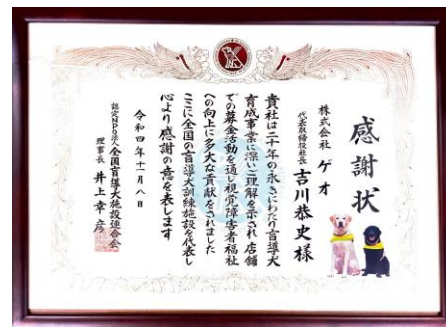 感謝状
株式会社 ゲオ
代表取締役社長 吉川恭史様
貴社は二十年の永きにわたり盲導犬
育成事業に深いご理解を示され店舗
での募金活動を通し視覚障害者福祉
への向上に多大な貢献をされました
ここに全国の盲導犬訓練施設を代表し
心より感謝の意を表します
令和四年十一月八日
認定NPO法人全国盲導犬施設連合会
理事長 井上幸彦